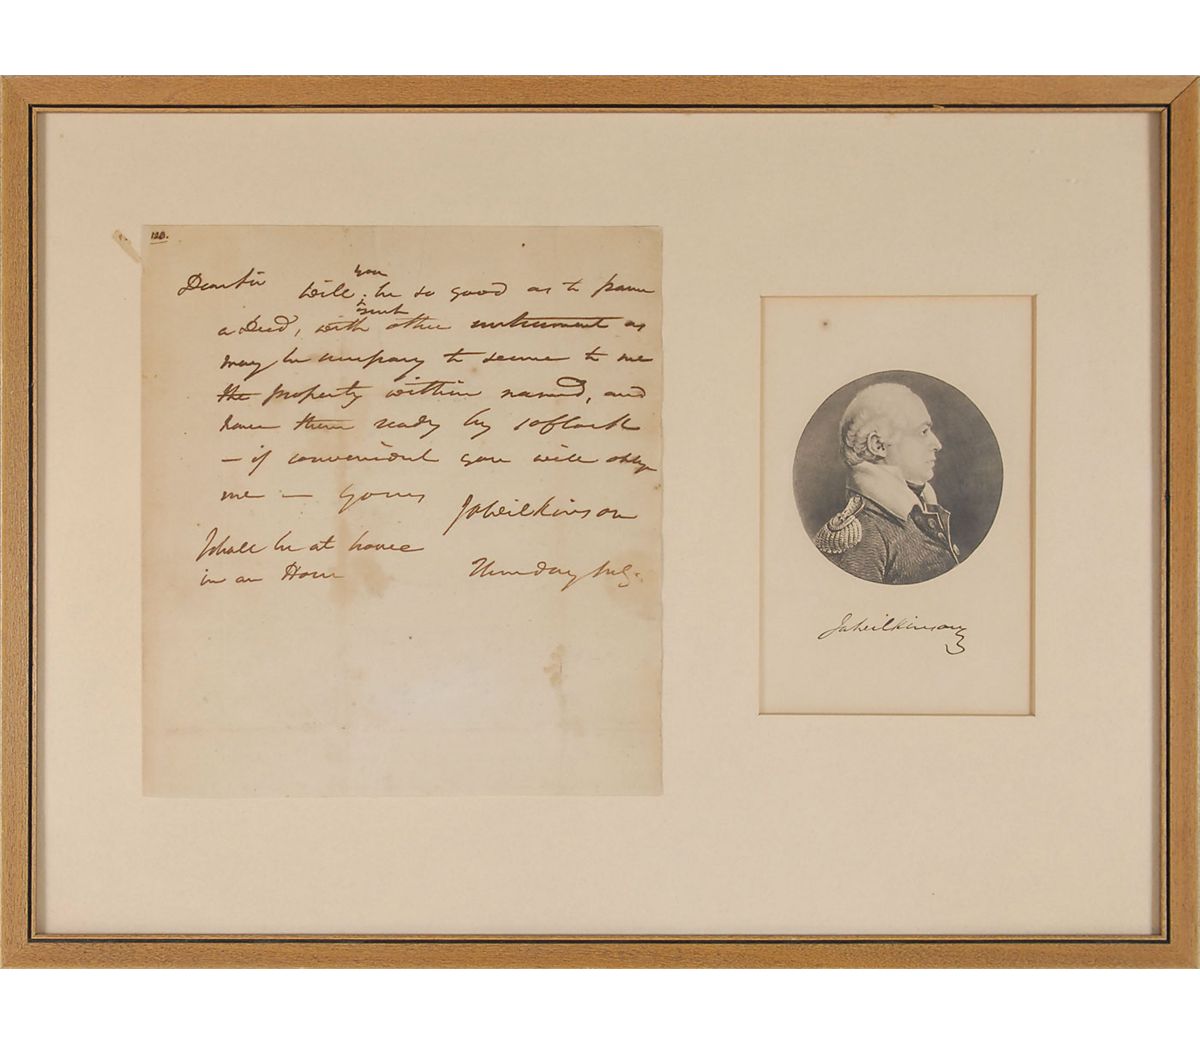 128.
Dear Sir
Will you be so good as to frame
a Deed, with such other instrument as
may be necessary to secure to me
the property within named, and
have them ready by 10 oClock
— if convenient you will oblige
me — Yours
Ja Wilkinson
I shall be at home
in an Hour
Thursday
Ja Wilkinson